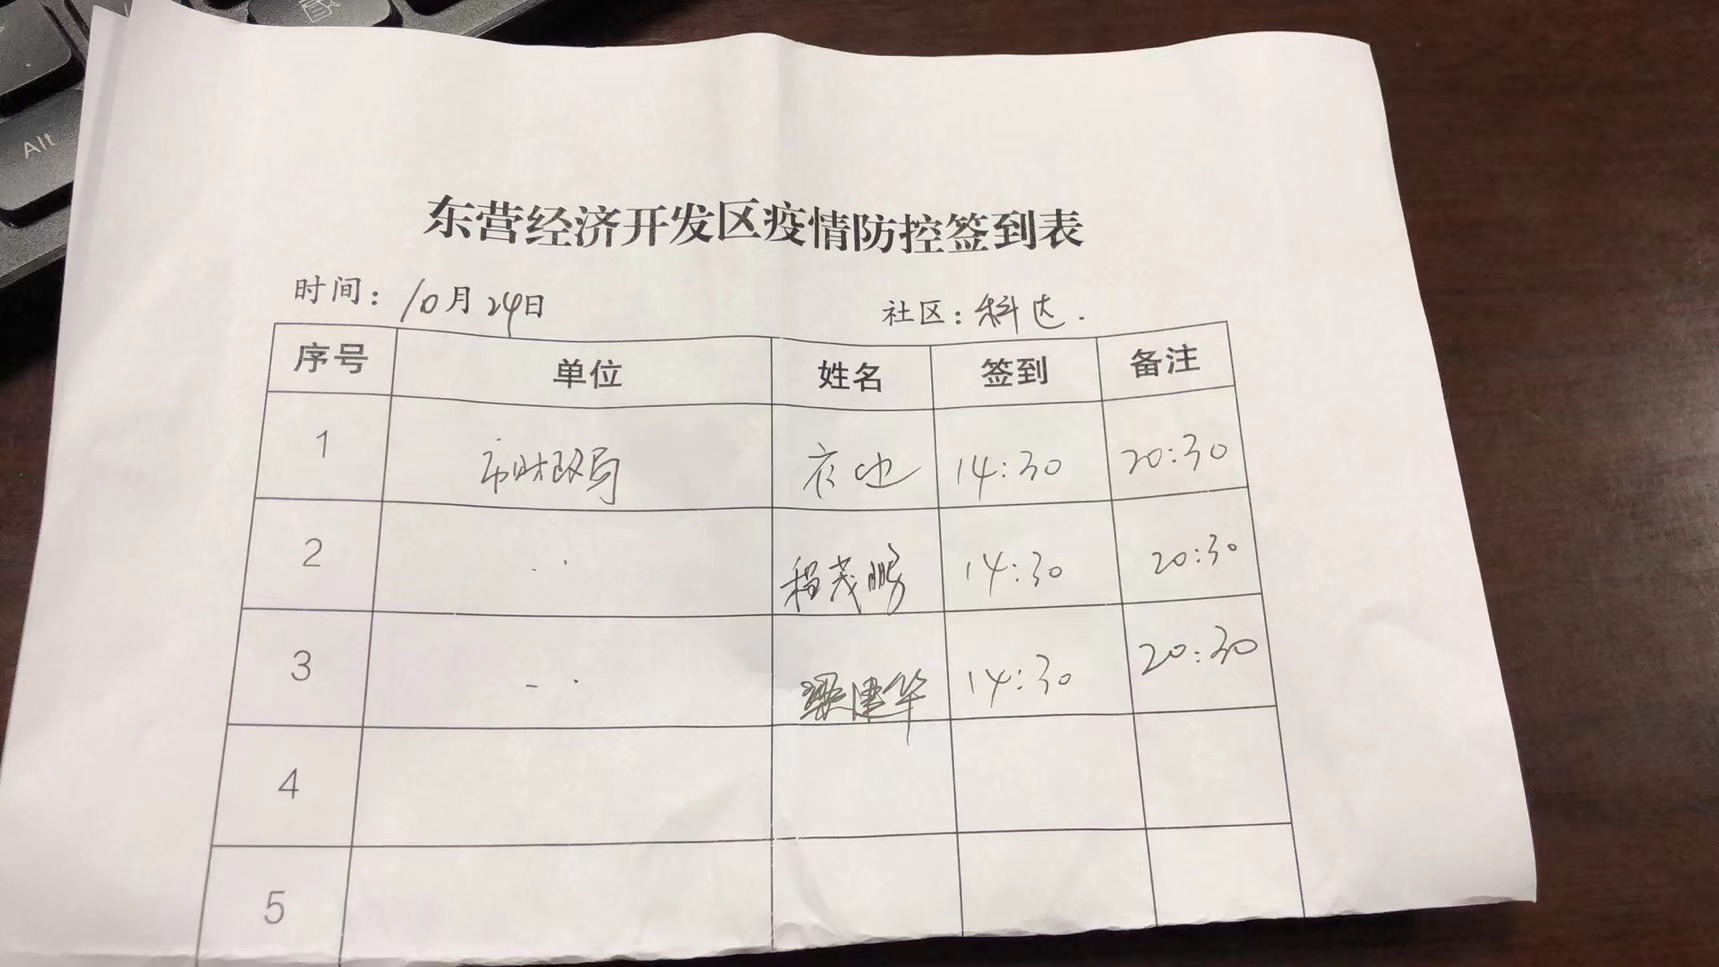 Alt
东营经济开发区疫情防控签到表
时间：10月24日 社区：科达.
序号 单位 姓名 签到 备注
1 市财政局 14:30 20:30
2 程茂鹏 14:30 20:30
3 梁建华 14:30 20:30
4
5